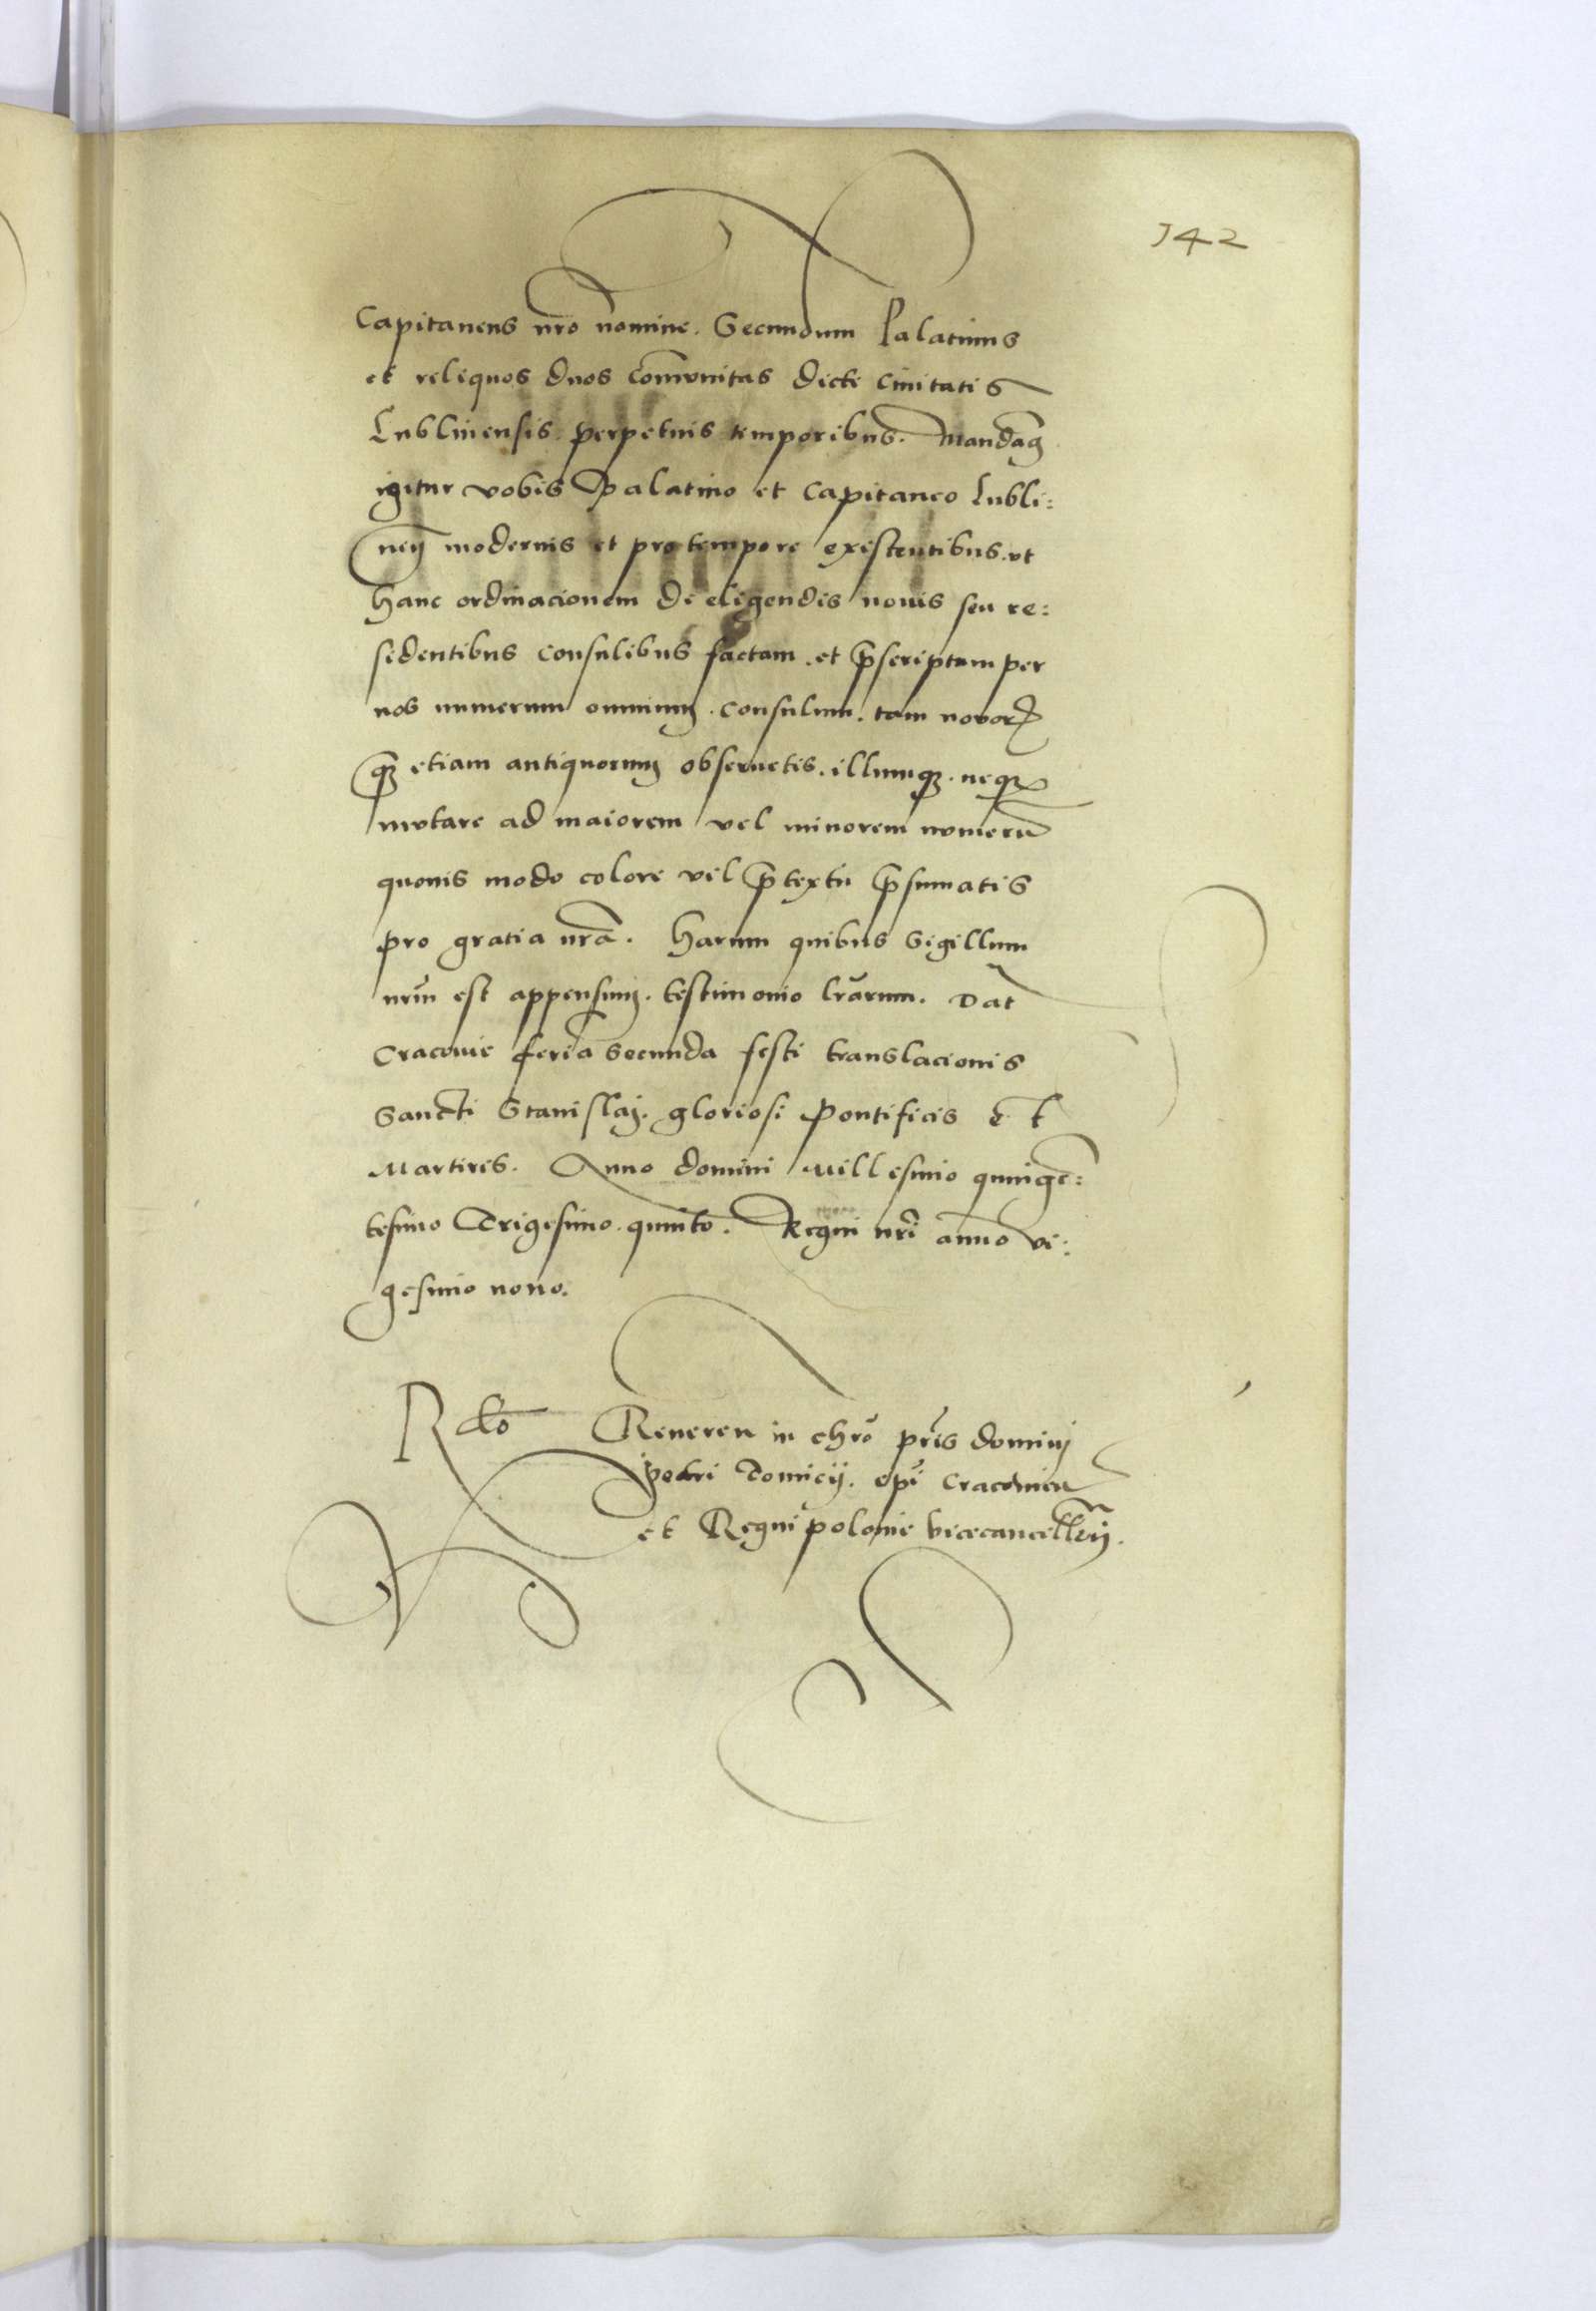 142
Capitaneus nr̃o nomine. Secundum Palatinus
et reliquos duos com̃unitas dicte Ciuitatis
Lublinensis. perpetuis temporibus. Mandam̃
igitur vobis Palatino et Capitaneo Lubli:
neñ modernis et pro tempore existentibus. vt
hanc ordinacionem de eligendis nouis seu re:
sidentibus consulibus factam. et p̃scriptum per
nos numerum omnium. consulum. tam nouorꝝ
qꝫ etiam antiquorum obseruetis. illumqꝫ. neqꝫ
mutare ad maiorem vel minorem numerũ
quouis modo colore vel p̃textu p̃sumatis
pro gratia nr̃a. Harum quibus Sigillum
nr̃m est appensum. testimonio lr̃arum. Dat
Cracouie feria secunda festi translacionis
Sancti Stanislaj. gloriosi Pontificis et
Martiris. Anno domini Millesimo quingẽ:
tesimo Trigesimo. quinto. Regni nr̃i anno vi:
gesimo nono.
R̃do Reueren in chrõ pr̃is dominj
Petri Tomicij. epĩ Cracouien
et Regni Polonie vicecancellr̃ij.